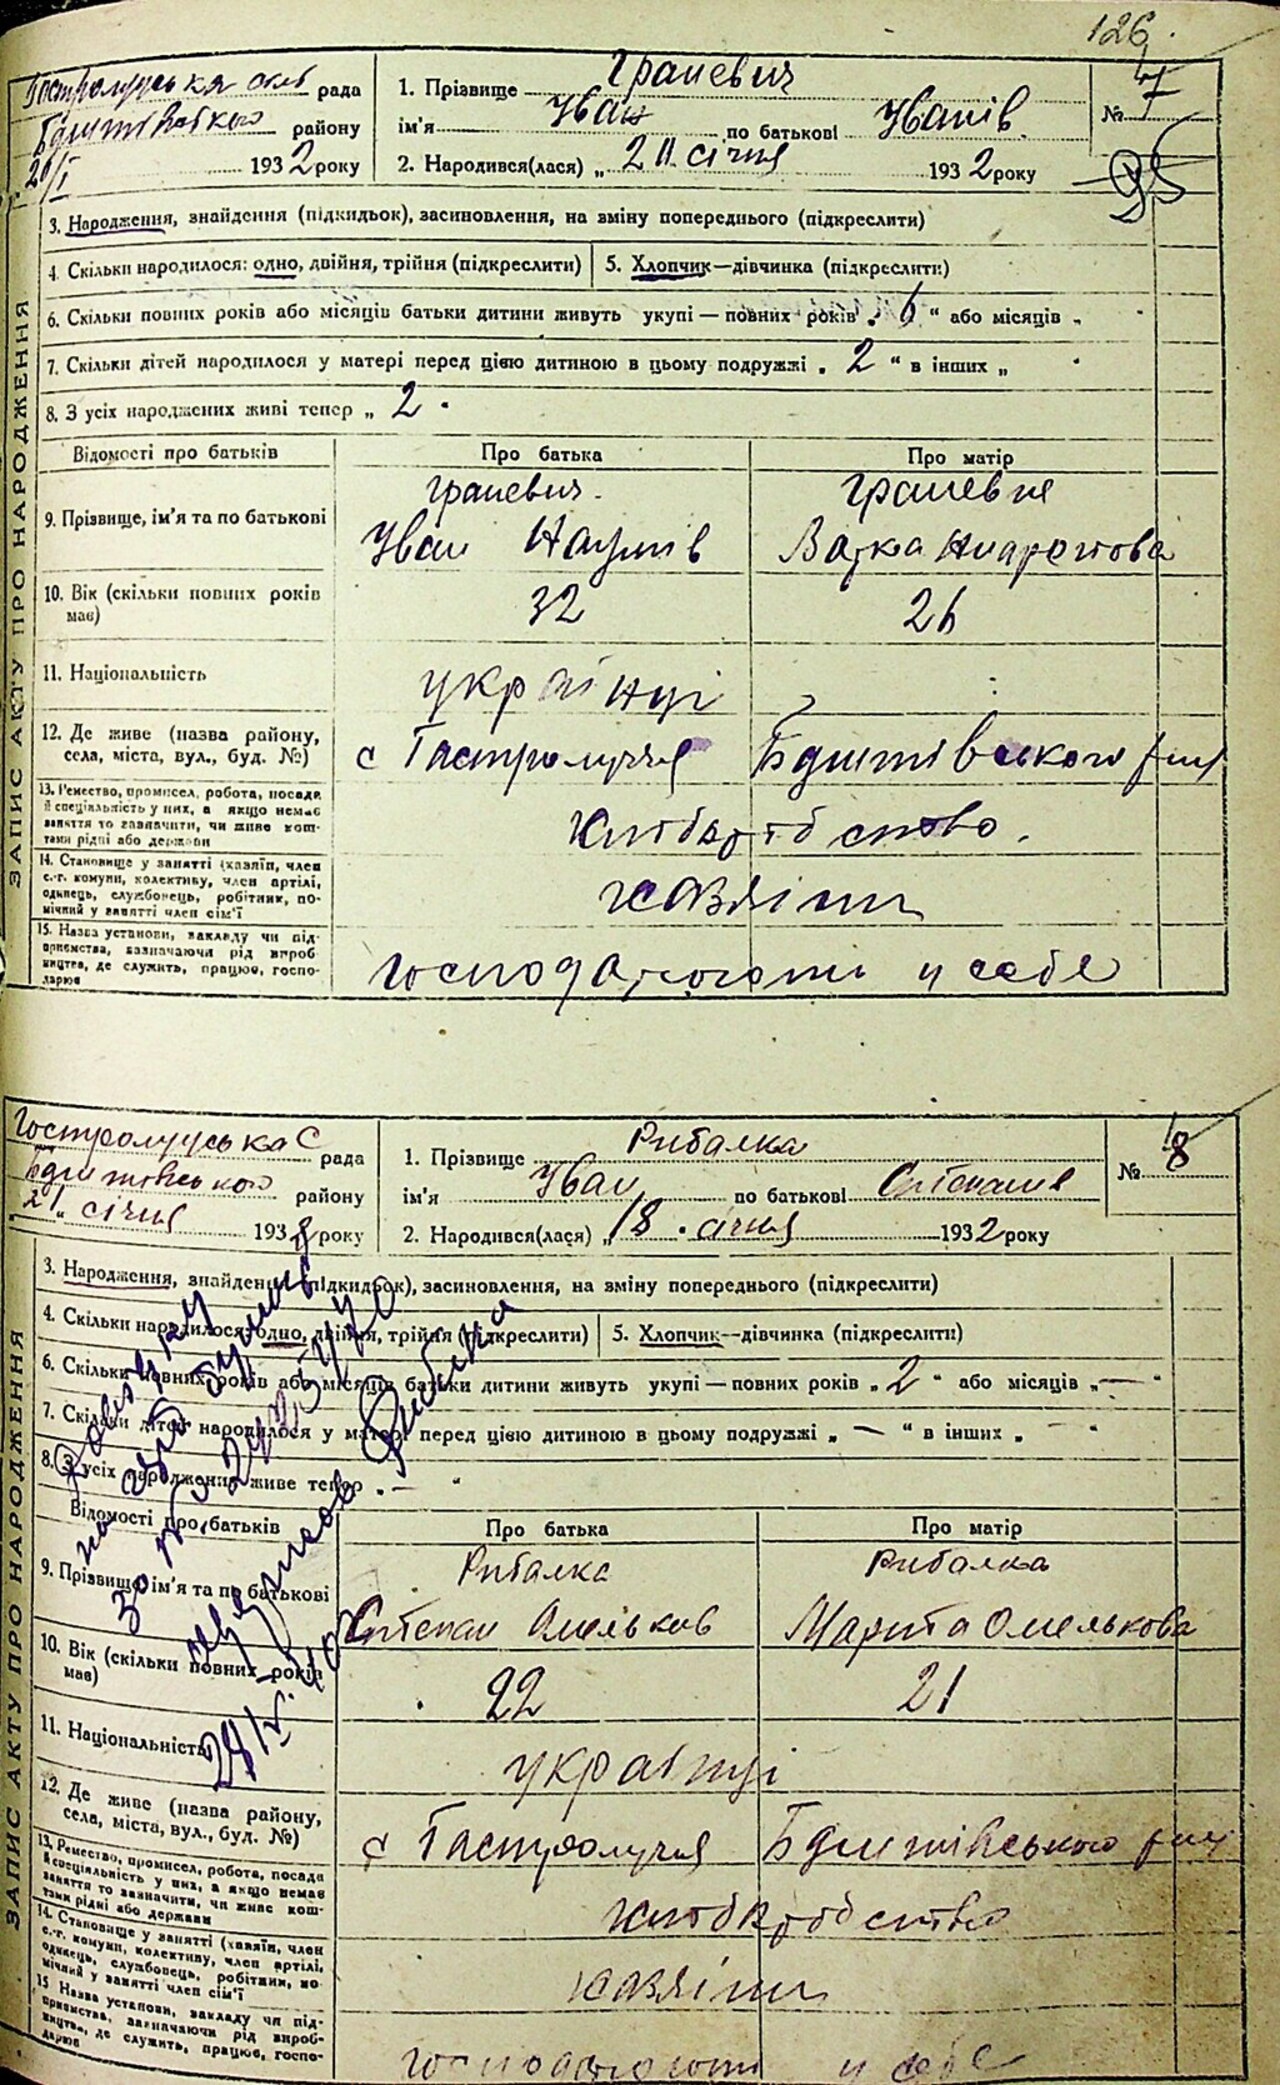 126.
Гостролуцька сіль рада
району
20/I 1932 року
1. Прізвище Граневич
ім'я Іван по батькові Іванів
2. Народився(лася) „ 2 II. січня 1932 року
№ 7
95
ЗАПИС АКТУ ПРО НАРОДЖЕННЯ
3. Народження, знайдення (підкидьок), засиновлення, на зміну попереднього (підкреслити)
4. Скільки народилося: одно, двійня, трійня (підкреслити) 5. Хлопчик—дівчинка (підкреслити)
6. Скільки повних років або місяців батьки дитини живуть укупі — повних років „ 6 “ або місяців „
7. Скільки дітей народилося у матері перед цією дитиною в цьому подружжі „ 2 “ в інших „
8. З усіх народжених живі тепер „ 2
Відомості про батьків Про батька Про матір
Граневич. Граневич
9. Прізвище, ім'я та по батькові Іван Наумів
10. Вік (скільки повних років має) 32 26
11. Національність українці
12. Де живе (назва району, села, міста, вул., буд. №) с Гостролуччя
13. Ремество, промисел, робота, посада й спеціяльність у них, а якщо немає заняття то зазначити, чи живе коштами рідні або держави хліборобство.
14. Становище у занятті (хазяїн, член с.-г. комуни, колективу, член артілі, одинець, службовець, робітник, помічний у занятті член сім'ї хазяїни
15. Назва установи, закладу чи підприємства, зазначаючи рід виробництва, де служить, працює, господарює господарюють у себе
Гостролуцька С рада
району
21 „ січня 193 року
1. Прізвище Рибалка
ім'я Іван по батькові Степанів
2. Народився(лася) „ 18 . січня 1932 року
№ 8
ЗАПИС АКТУ ПРО НАРОДЖЕННЯ
3. Народження, знайдення (підкидьок), засиновлення, на зміну попереднього (підкреслити)
4. Скільки народилося: одно, двійня, трійня (підкреслити) 5. Хлопчик—дівчинка (підкреслити)
6. Скільки повних років або місяців батьки дитини живуть укупі — повних років „ 2 “ або місяців „ — “
7. Скільки дітей народилося у матері перед цією дитиною в цьому подружжі „ — “ в інших „ — “
8. З усіх народжених живе тепер „ — “
Відомості про батьків Про батька Про матір
Рибалка Рибалка
9. Прізвище, ім'я та по батькові Степан Омельків Омелькова
10. Вік (скільки повних років має) 22 21
11. Національність українці
12. Де живе (назва району, села, міста, вул., буд. №) с Гостролуччя
13. Ремество, промисел, робота, посада й спеціяльність у них, а якщо немає заняття то зазначити, чи живе коштами рідні або держави хліборобство
14. Становище у занятті (хазяїн, член с.-г. комуни, колективу, член артілі, одинець, службовець, робітник, помічний у занятті член сім'ї хазяїни
15 Назва установи, закладу чи підприємства, зазначаючи рід виробництва, де служить, працює, господарює господарюють у себе